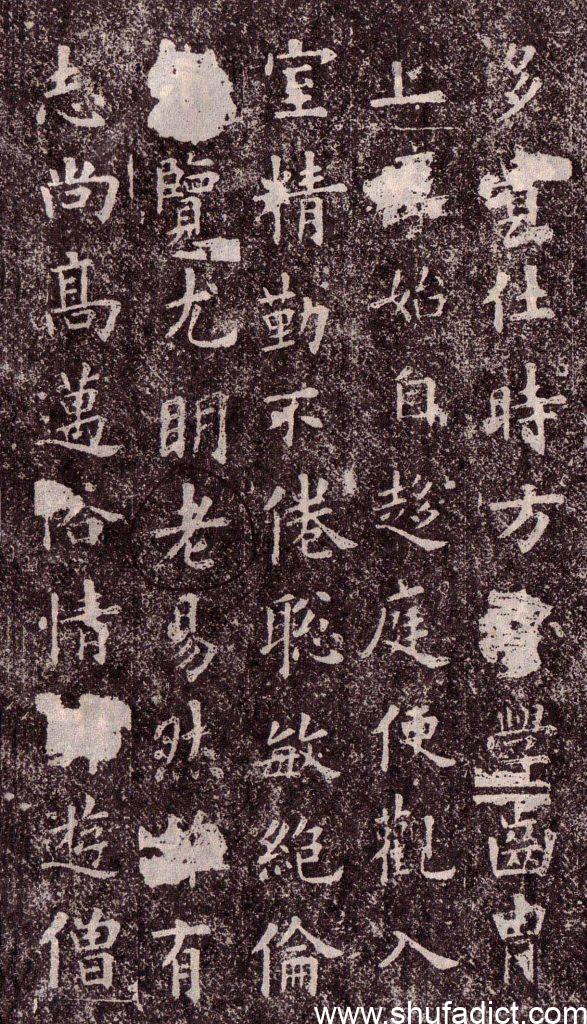 多仕時方學齒胄
上始自趍庭便觀入
室精勤不倦聡敏絶倫
覽尤明老易然有
志尚髙邁俗情遊僧
www.shufadict.com